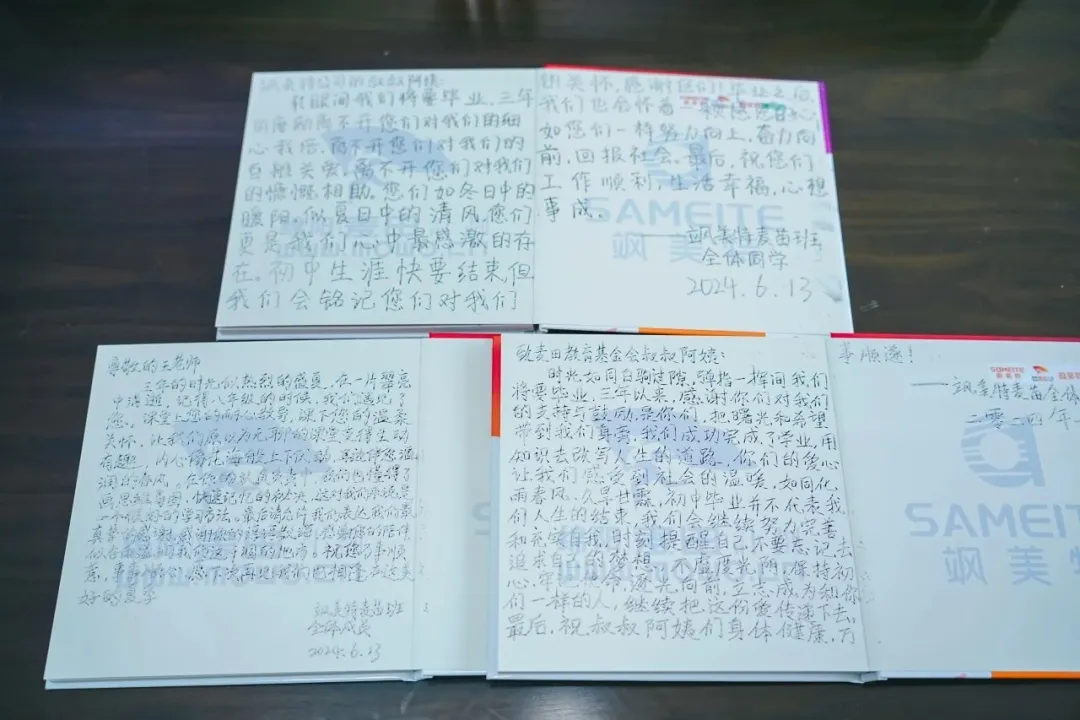 飒美特公司的叔叔阿姨：
转眼间我们将要毕业，三年
离不开您们对我们的细
心栽培，离不开您们对我们的
关爱，离不开您们对我们
的慷慨相助。您们如冬日中的
暖阳，似夏日中的清风，您们
更是我们心中最感激的存
在。初中生涯快要结束，但
我们会铭记您们对我们
的关怀，感谢您们！毕业之后，
我们也会怀着一颗感恩的心
如您们一样努力向上，奋力向
前，回报社会。最后，祝您们
工作顺利，生活幸福，心想
事成。
SAMEITE
飒美特
——飒美特麦苗班
全体同学
2024.6.13
尊敬的王老师
三年的时光似热烈的盛夏，在一片
中 。记得八年级的时候，我们遇见了
您。课堂上您的耐心教导，课下您的温柔
关怀，让我们原以为无聊的课堂变得生动
有趣，内心
润的春风。在您 认真负责中，我们也懂得了
画思维导图，快速记忆的秘诀，这对我们来说是
一个很好的学习方法。最后请允许我们表达我们最
真挚的感谢，感谢您的
祝您万事顺
意， 您下次再见我们也相逢在这美
好的夏季
飒美特麦苗班
全体成员
2024.6.13
致麦田教育基金会叔叔阿姨：
时光如同白驹过隙，弹指一挥间我们
将要毕业，三年以来，感谢你们对我们
的支持与鼓励，是你们，把曙光和希望
带到我们身旁，我们成功完成了学业，用
知识去改写人生的道路，你们的爱心
让我们感受到社会的温暖，如同化
雨春风，久旱甘霖，初中毕业并不代表我
们人生的结束，我们会继续努力完善
和充实自我，时刻提醒自己不要忘记去
追求自己的梦想，不虚度光阴，保持初
心，牢记使命，逐光向前，立志成为和你
们一样的人，继续把这份爱传递下去，
最后，祝叔叔阿姨们身体健康，万
事顺遂！
SAMEITE
飒美特
——飒美特麦苗全体
二零二四年
SAMEITE
飒美特